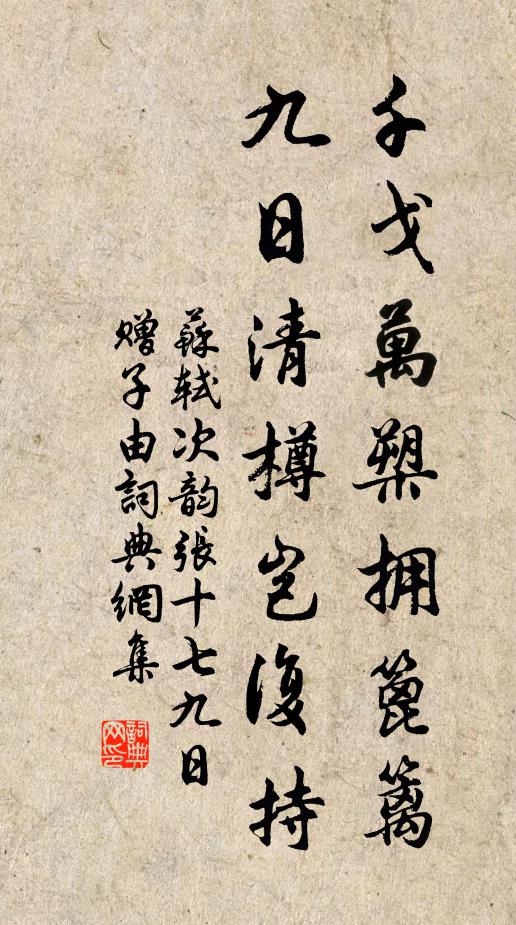 千戈萬槊擁篦籬
九日清樽豈復持
蘇軾次韵張十七九日
贈子由詞典網集
詞典網印